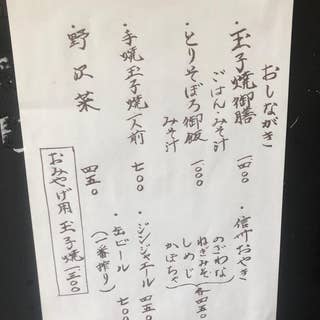 おしながき
・玉子焼御膳 一四〇〇
ごはん・みそ汁
・とりそぼろ御飯 一〇〇〇
みそ汁
・手焼玉子焼一人前 七〇〇
・野沢菜 四五〇
おみやげ用玉子焼一三〇〇
・信州おやき
のざわな
ねぎみそ
しめじ
かぼちゃ
各四五〇
・ジンジャエール 四五〇
・缶ビール 七〇〇
(一番搾り)